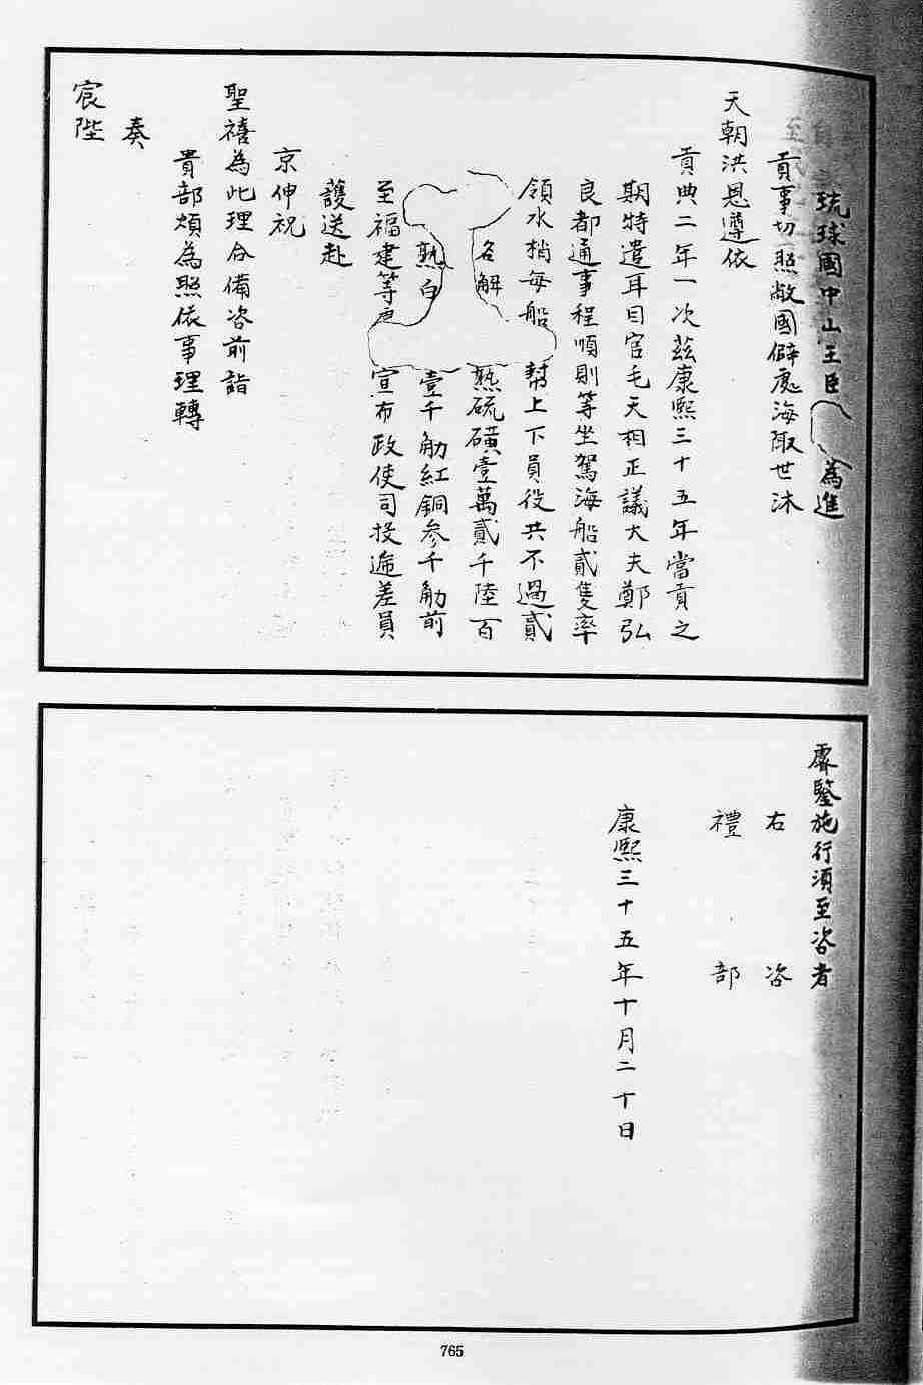 琉球國中山王臣 為進
貢事切照敝國僻處海陬世沐
天朝洪恩遵依
貢典二年一次茲康熙三十五年當貢之
期特遣耳目官毛天相正議大夫鄭弘
良都通事程順則等坐駕海船貳隻率
領水梢每船 幫上下員役共不過貳
名解 熟硫磺壹萬貳千陸百
熟白 壹千觔紅銅參千觔前
至福建等處 宣布政使司投遞差員
護送赴
京伸祝
聖禧為此理合備咨前詣
貴部煩為照依事理轉
奏
宸陛
鑒施行須至咨者
右 咨
禮 部
康熙三十五年十月二十日
765